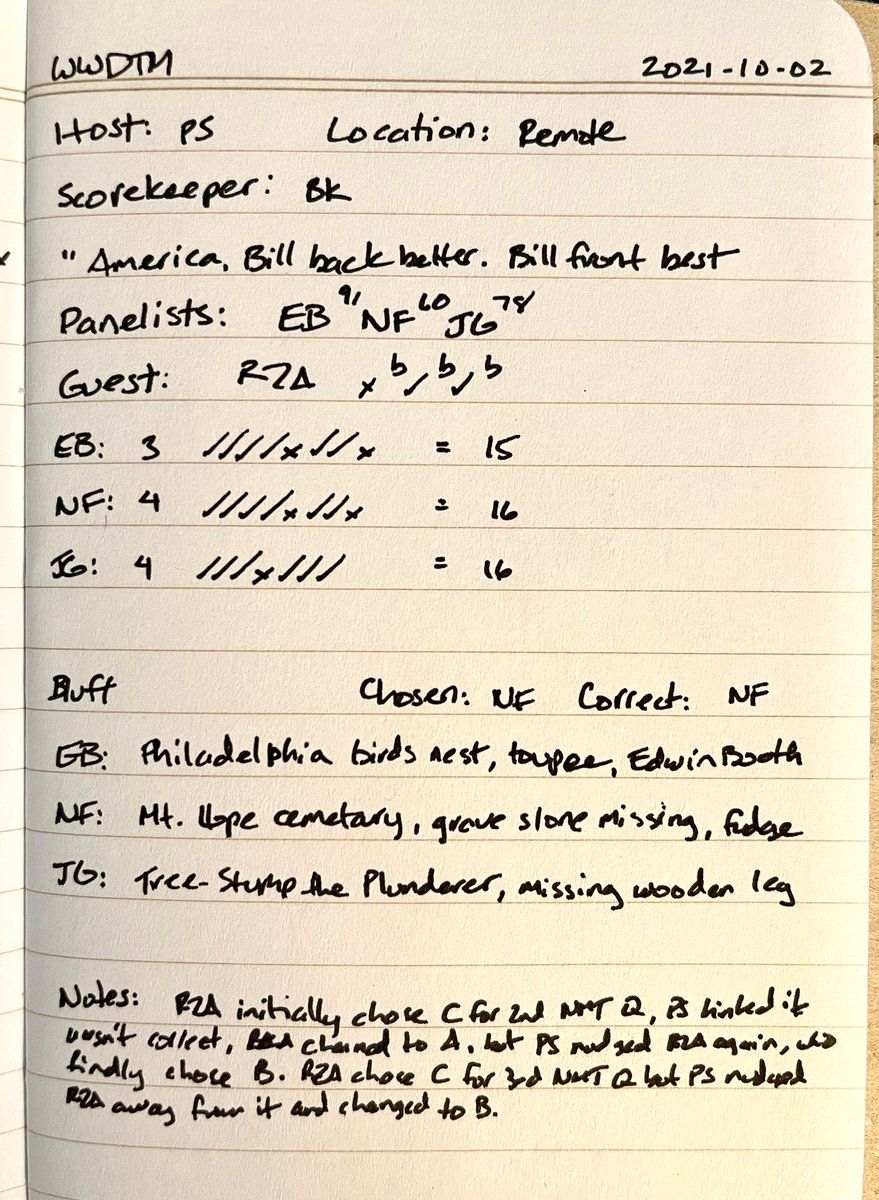 WWDTM 2021-10-02
Host: PS Location: Remote
Scorekeeper: BK
" America, Bill back better. Bill front best
Panelists: EB 91 NF 60 JG 78
Guest: RZA x b ✓ b ✓ b
EB: 3 ////x//x = 15
NF: 4 ////x//x = 16
JG: 4 ///x/// = 16
Bluff Chosen: NF Correct: NF
EB: Philadelphia birds nest, toupee, Edwin Booth
NF: Mt. Hope cemetary, grave stone missing, fudge
JG: Tree-Stump the Plunderer, missing wooden leg
Notes: RZA initially chose C for 2nd NMT Q, PS hinted it
wasn't correct, RZA changed to A, but PS nudged RZA again, who
finally chose B. RZA chose C for 3rd NMT Q but PS nudged
RZA away from it and changed to B.